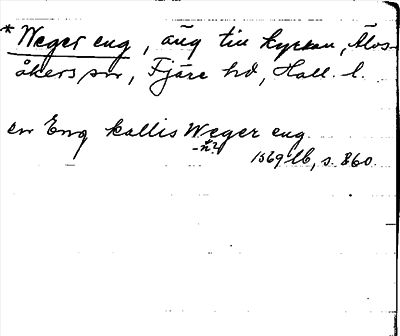 * Weger eng, äng till kyrkan, Älvs-
åkers sn, Fjäre hd, Hall. l.
en Eng kallis Weger eng
-n?
1569 lb, s. 860.